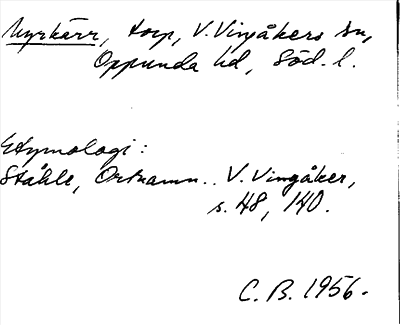 Myrkärr, torp, V. Vingåkers sn,
Oppunda hd, Söd. l.
Etymologi:
Ståhle, Ortnamn.. V. Vingåker,
s. 48, 140.
C. B. 1956.